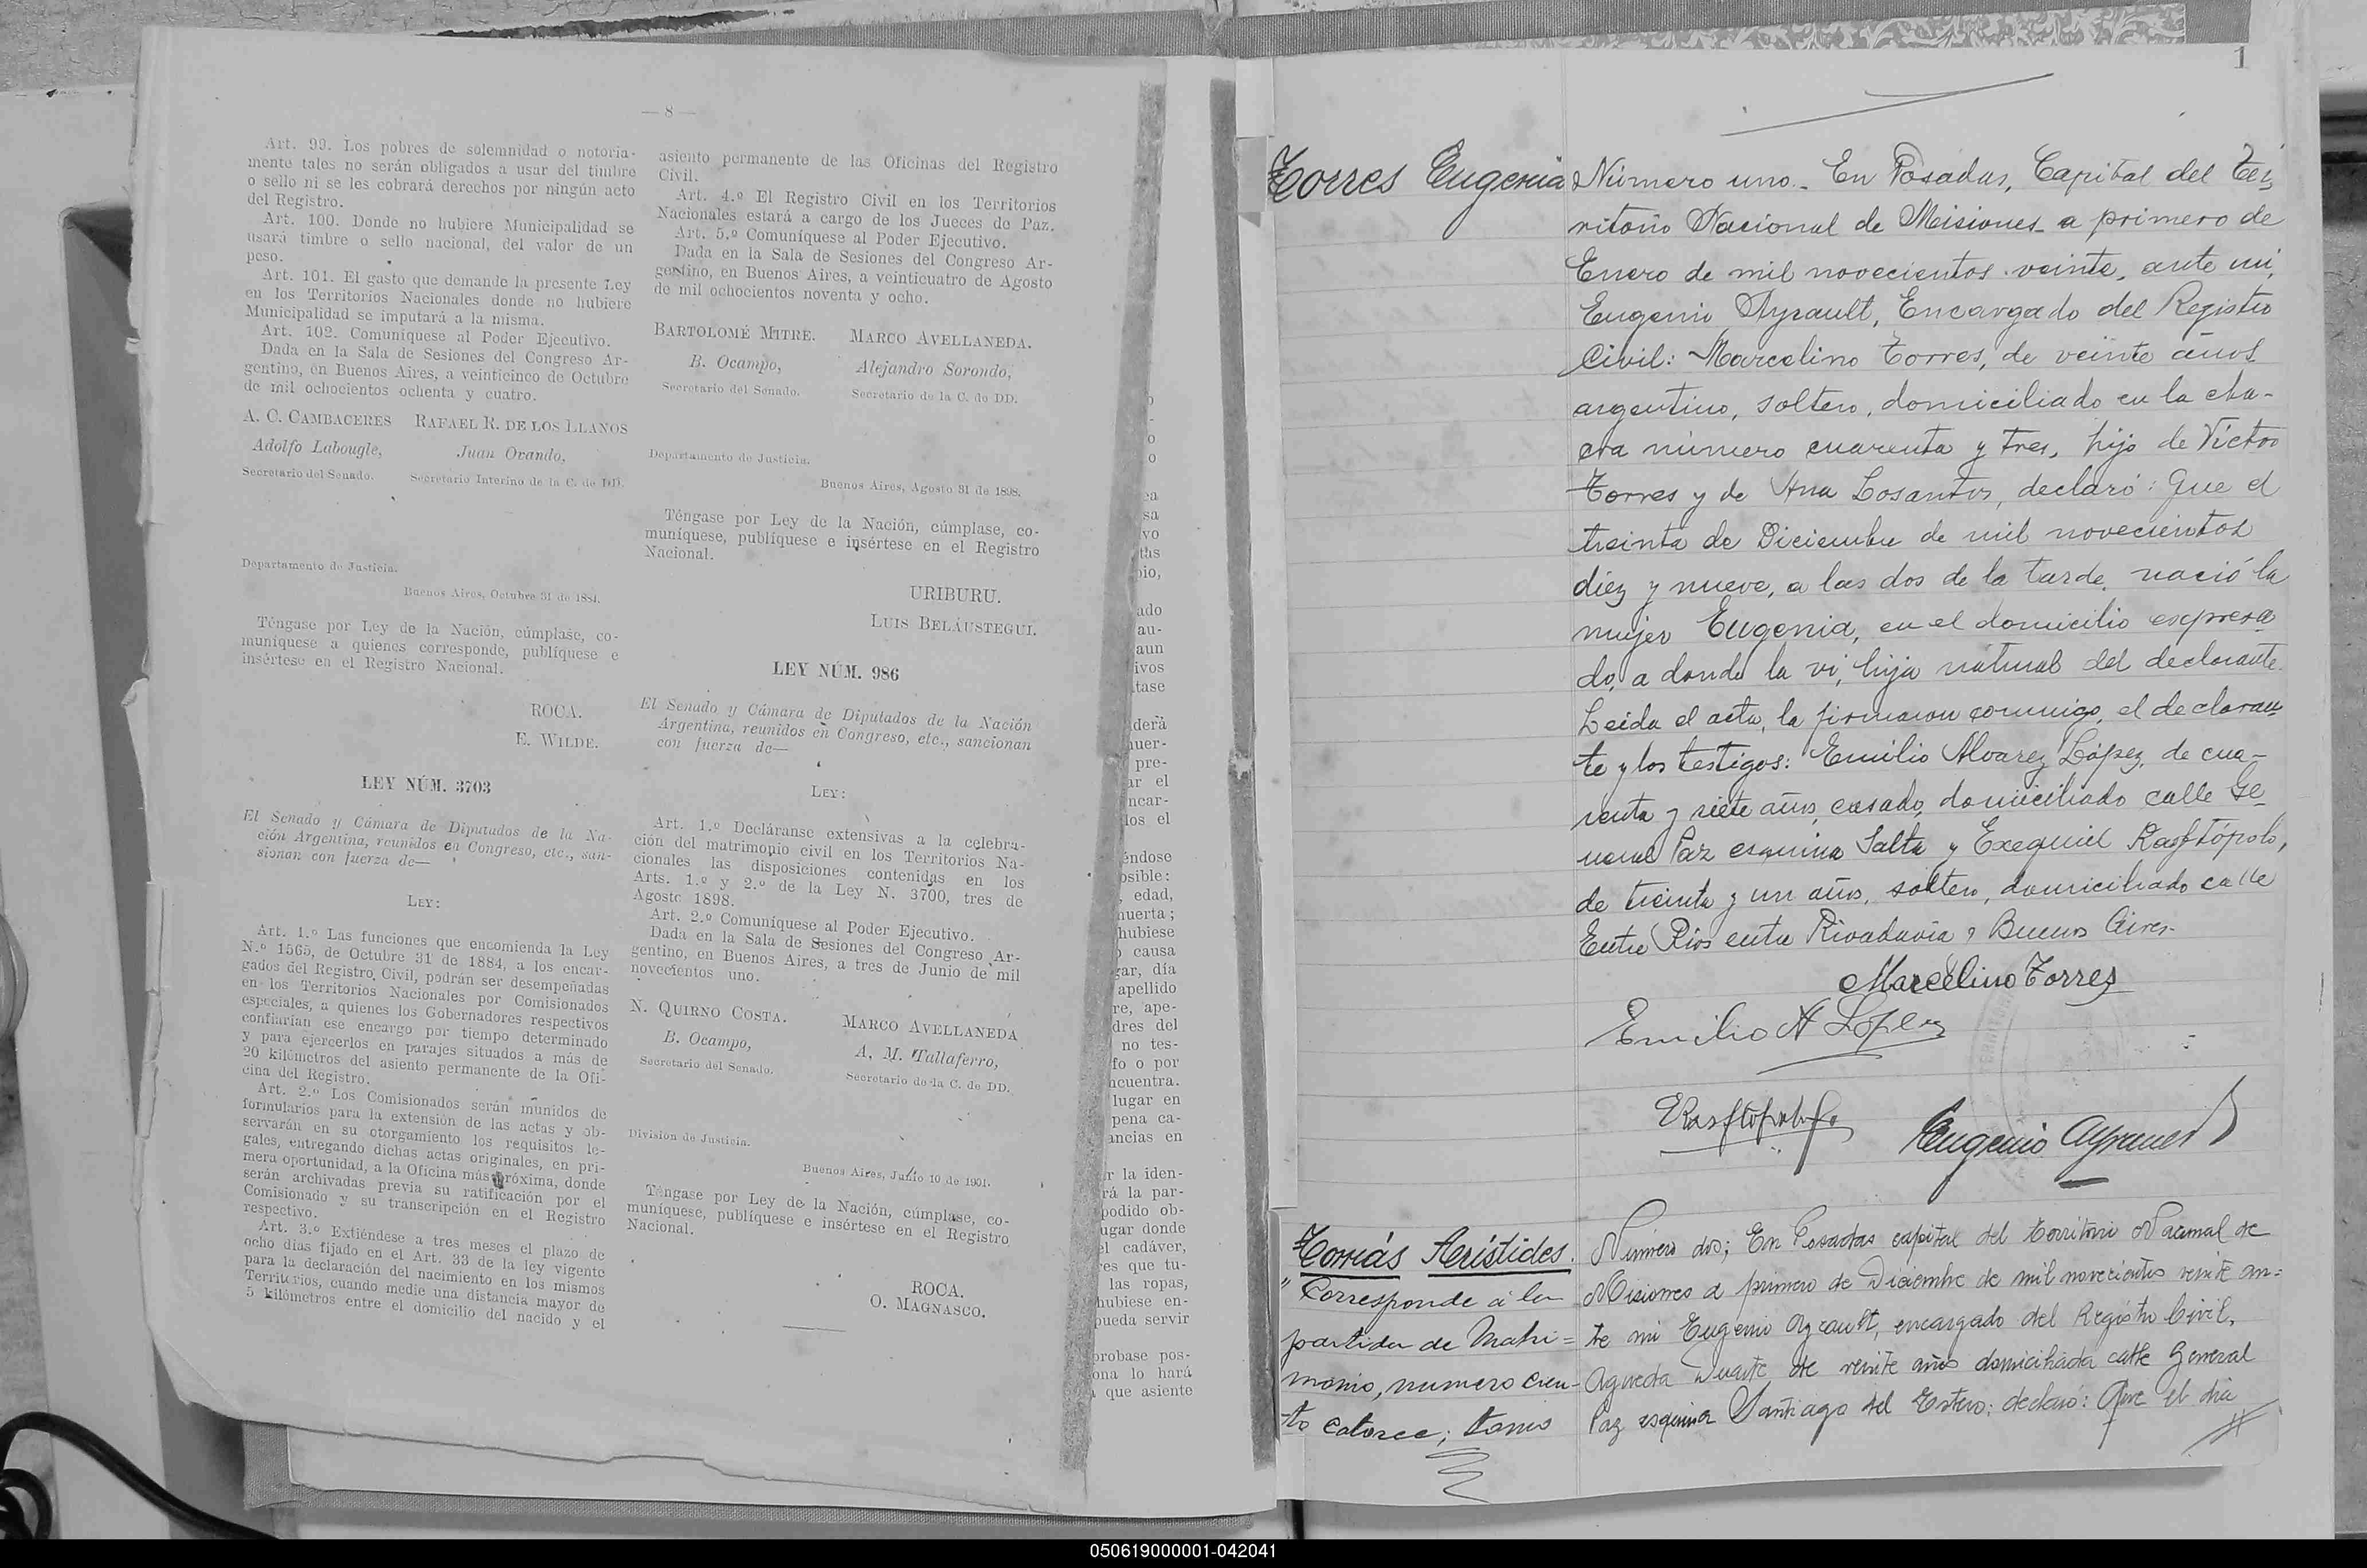 — 8 —
Art. 99. Los pobres de solemnidad o notoria-
mente tales no serán obligados a usar del timbre
o sello ni se les cobrará derechos por ningún acto
del Registro.
Art. 100. Donde no hubiere Municipalidad se
usará timbre o sello nacional, del valor de un
peso.
Art. 101. El gasto que demande la presente Ley
en los Territorios Nacionales donde no hubiere
Municipalidad se imputará a la misma.
Art. 102. Comuníquese al Poder Ejecutivo.
Dada en la Sala de Sesiones del Congreso Ar-
gentino, en Buenos Aires, a veinticinco de Octubre
de mil ochocientos ochenta y cuatro.
A. C. CAMBACERES RAFAEL R. DE LOS LLANOS
Adolfo Labougle, Juan Ovando,
Secretario del Senado. Secretario Interino de la C. de DD.
Departamento de Justicia.
Buenos Aires, Octubre 31 de 1884.
Téngase por Ley de la Nación, cúmplase, co-
muníquese a quienes corresponde, publíquese e
insértese en el Registro Nacional.
ROCA.
E. WILDE.
LEY NÚM. 3703
El Senado y Cámara de Diputados de la Na-
ción Argentina, reunidos en Congreso, etc., san-
sionan con fuerza de—
LEY:
Art. 1.º Las funciones que encomienda la Ley
N.º 1565, de Octubre 31 de 1884, a los encar-
gados del Registro Civil, podrán ser desempeñadas
en los Territorios Nacionales por Comisionados
especiales, a quienes los Gobernadores respectivos
confiarían ese encargo por tiempo determinado
y para ejercerlos en parajes situados a más de
20 kilómetros del asiento permanente de la Ofi-
cina del Registro.
Art. 2.º Los Comisionados serán munidos de
formularios para la extensión de las actas y ob-
servarán en su otorgamiento los requisitos le-
gales, entregando dichas actas originales, en pri-
mera oportunidad, a la Oficina más próxima, donde
serán archivadas previa su ratificación por el
Comisionado y su transcripción en el Registro
respectivo.
Art. 3.º Extiéndese a tres meses el plazo de
ocho dias fijado en el Art. 33 de la ley vigente
para la declaración del nacimiento en los mismos
Territorios, cuando medie una distancia mayor de
5 kilómetros entre el domicilio del nacido y el
asiento permanente de las Oficinas del Registro
Civil.
Art. 4.º El Registro Civil en los Territorios
Nacionales estará a cargo de los Jueces de Paz.
Art. 5.º Comuníquese al Poder Ejecutivo.
Dada en la Sala de Sesiones del Congreso Ar-
gentino, en Buenos Aires, a veinticuatro de Agosto
de mil ochocientos noventa y ocho.
BARTOLOMÉ MITRE. MARCO AVELLANEDA.
B. Ocampo, Alejandro Sorondo,
Secretario del Senado. Secretario de la C. de DD.
Departamento de Justicia.
Buenos Aires, Agosto 31 de 1898.
Téngase por Ley de la Nación, cúmplase, co-
muníquese, publíquese e insértese en el Registro
Nacional.
URIBURU.
LUIS BELÁUSTEGUI.
LEY NÚM. 986
El Senado y Cámara de Diputados de la Nación
Argentina, reunidos en Congreso, etc., sancionan
con fuerza de—
LEY:
Art. 1.º Decláranse extensivas a la celebra-
ción del matrimonio civil en los Territorios Na-
cionales las disposiciones contenidas en los
Arts. 1.º y 2.º de la Ley N. 3700, tres de
Agosto 1898.
Art. 2.º Comuníquese al Poder Ejecutivo.
Dada en la Sala de Sesiones del Congreso Ar-
gentino, en Buenos Aires, a tres de Junio de mil
novecientos uno.
N. QUIRNO COSTA. MARCO AVELLANEDA
B. Ocampo, A. M. Tallaferro,
Secretario del Senado. Secretario de la C. de DD.
División de Justicia.
Buenos Aires, Junio 10 de 1901.
Téngase por Ley de la Nación, cúmplase, co-
muníquese, publíquese e insértese en el Registro
Nacional.
ROCA.
O. MAGNASCO.
ado
au-
aun
ivos
tase
derá
uer-
pre-
ar el
ncar-
los el
éndose
osible:
, edad,
uerta;
hubiese
causa
gar, día
apellido
re, ape-
dres del
no tes-
fo o por
ncuentra.
lugar en
pena ca-
ancias en
r la iden-
rá la par-
podido ob-
ugar donde
el cadáver,
res que tu-
las ropas,
hubiese en-
pueda servir
probase pos-
ona lo hará
que asiente
1
Torres Eugenia
Número uno.- En Posadas, Capital del Ter-
ritorio Nacional de Misiones a primero de
Enero de mil novecientos veinte, ante mi,
Eugenio Ayrault, Encargado del Registro
Civil: Marcelino Torres, de veinte años
argentino, soltero, domiciliado en la cha-
cra número cuarenta y tres, hijo de Victor
Torres y de Ana Losantos, declaró: Que el
treinta de Diciembre de mil novecientos
diez y nueve, a las dos de la tarde, nació la
mujer Eugenia, en el domicilio expresa
do, a donde la vi, hija natural del declarante.
Leida el acta, la firmaron conmigo, el declaran
te y los testigos: Emilio Alvarez López, de cua-
renta y siete años, casado, domiciliado calle Ge
neral Paz esquina Salta y Exequiel Rasftópolo,
de treinta y un años, soltero, domiciliado calle
Entre Rios entre Rivadavia y Buenos Aires.
Marcelino Torres
Emilio A López
ERasftopolo
Eugenio Ayrault
Torrás Arístides.
"Corresponde á la
partida de Matri=
monio, numero cien-
to catorce; tomo
Número dos; En Posadas capital del territorio Nacional de
Misiones a primero de Diciembre de mil novecientos veinte an=
te mi Eugenio Ayrault, encargado del Registro Civil,
Agueda Duarte de veinte años domiciliada calle General
Paz esquina Santiago del Estero; declaró: Que el dia
050619000001-042041